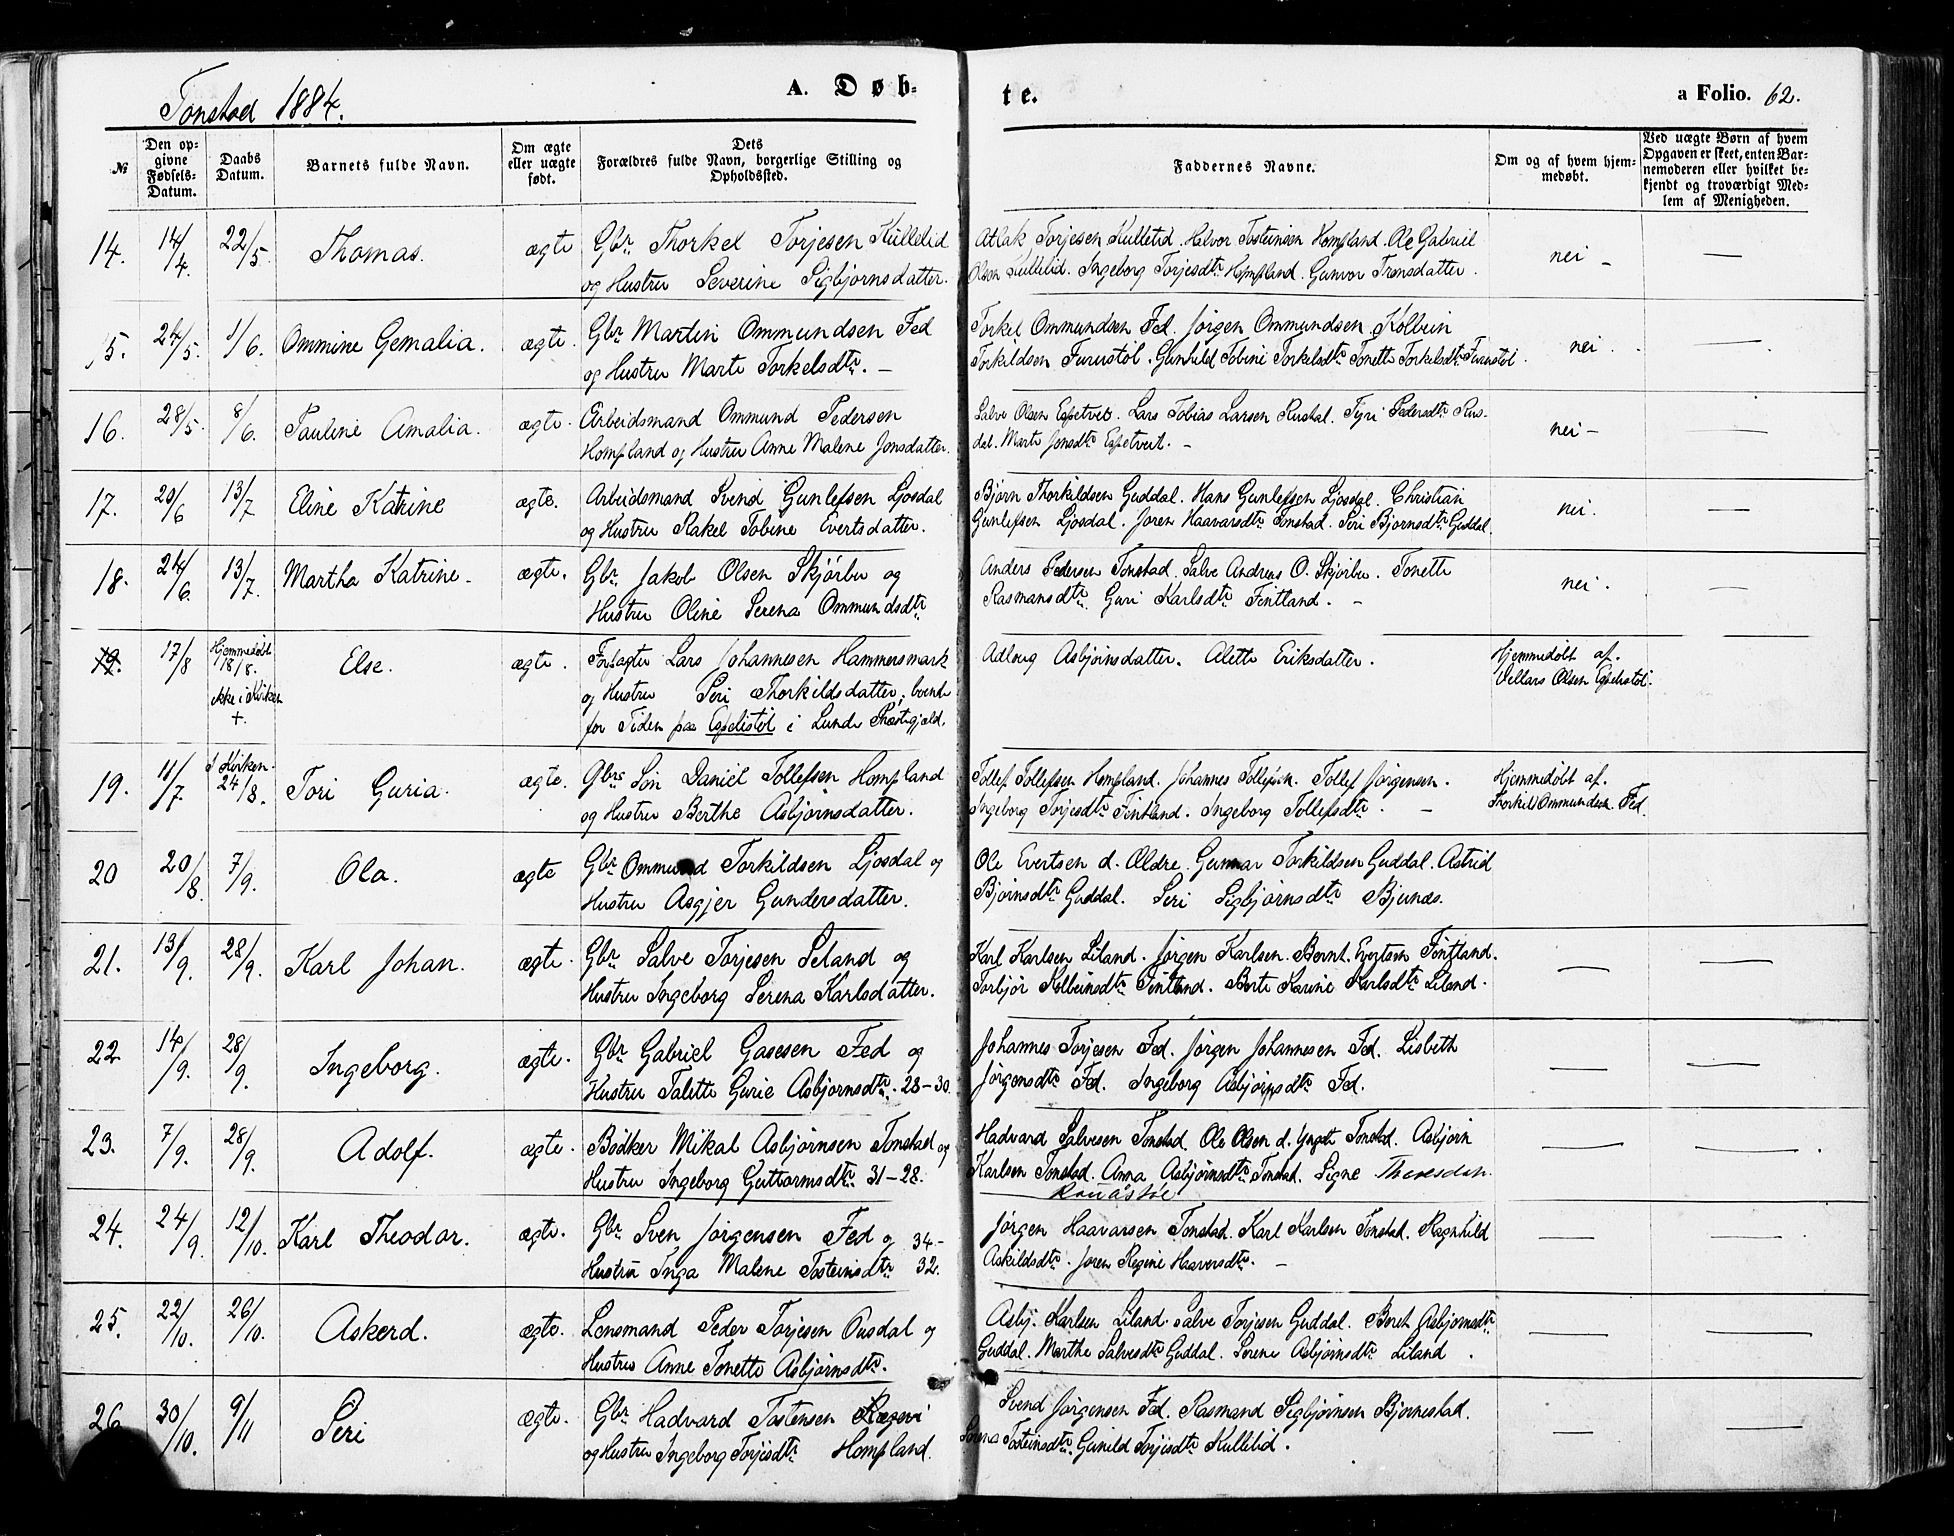 Tonstad 1884.
A. Døb-
te.
a Folio. 62.
№
Den op-
givne
Fødsels-
Datum.
Daabs
Datum.
Barnets fulde Navn.
Om ægte
eller uægte
født.
Dets
Forældres fulde Navn, borgerlige Stilling og
Opholdssted.
Faddernes Navne.
Om og af hvem hjem-
medøbt.
Ved uægte Børn af hvem
Opgaven er skeet, enten Bar-
nemoderen eller hvilket be-
kjendt og troværdigt Med-
lem af Menigheden.
14. 14/4. 22/5. Thomas. ægte Gbr. Thorkel Torjesen Kullelid
og Hustru Severine Sigbjørnsdatter.
Atlak Torjesen Kullelid. Halvor Tosteinsen Hompland. Ole Gabriel
Olsen Kullelid. Ingeborg Torjesdtr. Hompland. Gunvor Tronsdatter.
nei –
15. 24/5. 1/6. Ommine Gemalia. ægte. Gbr. Martin Ommundsen Fed
og Hustru Marte Torkelsdtr. –
Torkel Ommundsen Fed. Jørgen Ommundsen. Kolbein
Torkildsen Furustøl. Gunhild Tobine Torkelsdtr. Tonette Torkelsdtr. Furustøl.
nei.
16. 28/5. 8/6. Pauline Amalia. ægte. Arbeidsmand Ommund Pedersen
Hompland og Hustru Anne Malene Jonsdatter.
Salve Olsen Espetveit. Lars Tobias Larsen Rusdal. Tyri Pedersdtr. Rus-
dal. Marte Jonsdtr. Espetveit. –
nei –
17. 20/6 13/7 Eline Katrine ægte. Arbeidsmand Svend Gunlefsen Ljosdal
og Hustru Rakel Tobine Evertsdatter.
Bjørn Thorkildsen Guddal. Hans Gunlefsen Ljosdal. Christian
Gunlefsen Ljosdal. Joren Haavarsdtr. Tonstad. Seri Bjørnsdtr. Guddal.
nei.
18. 24/6. 13/7. Martha Katrine. ægte. Gbr. Jakob Olsen Skjørbu og
Hustru Oline Serena Ommundsdtr.
Anders Pedersen Tonstad. Salve Andreas O. Skjørbu. Tonette
Rasmunsdtr. Guri Karlsdtr. Fintland. –
nei.
19. 17/8 Hjemmedøbt
18/8.
ikke i Kirken
+.
Else. ægte. Forpagter Lars Johannesen Hammersmark
og Hustru Seri Thorkildsdatter, boende
for Tiden paa Espelistøl i Lunde Præstegjeld.
Adlaug Asbjørnsdatter. Alette Eriksdatter.
Hjemmedøbt af.
Vellars Olsen Espelistøl.
19. 11/7. I Kirken.
24/8. Tori Guria. ægte. Gbrs Søn Daniel Tollefsen Hompland
og Hustru Berthe Asbjørnsdatter.
Tollef Tollefsen Hompland. Johannes Tollefsen. Tollef Jørgensen.
Ingeborg Torjesdtr. Fintland. Ingeborg Tollefsdtr. –
Hjemmedøbt af.
Thorkil Ommundsen Fed.
20 20/8. 7/9. Ola. ægte Gbr. Ommund Torkildsen Ljosdal og
Hustru Asgjer Gundersdatter.
Ole Evertsen d. Ældre. Gunnar Torkildsen Guddal. Astrid
Bjørnsdtr. Guddal. Seri Sigbjørnsdtr. Bjunæs.
21. 13/9. 28/9. Karl Johan. ægte. Gbr. Salve Torjesen Seland og
Hustru Ingeborg Serena Karlsdatter.
Karl Karlsen Liland. Jørgen Karlsen. Bernt. Evertsen Fintland.
Torbjør Kolbeinsdtr. Fintland. Berte Karine Karlsdtr. Liland.
22. 14/9. 28/9. Ingeborg. ægte. Gbr. Gabriel Gasesen Fed og
Hustru Talette Gurie Asbjørnsdtr. 28–30.
Johannes Torjesen Fed. Jørgen Johannesen Fed. Lisbeth
Jørgensdtr. Fed. Ingeborg Asbjørnsdtr. Fed.
23. 7/9. 28/9. Adolf. ægte. Bødker Mikal Asbjørnsen Tonstad og
Hustru Ingeborg Guttormsdtr. 31–28.
Hadvard Salvesen Tonstad. Ole Olsen d. Yngste Tonstad. Asbjørn
Karlsen Tonstad. Anna Asbjørnsdtr. Tonstad. Signe
24. 24/9. 12/10. Karl Theodor. ægte. Gbr. Sven Jørgensen Fed og 34.–
Hustru Inga Malene Tosteinsdtr. 32.
Jørgen Haavarsen Tonstad. Karl Karlsen Tonstad. Ragnhild
Askildsdtr. Joren Regine Haaversdtr. –
25. 22/10. 26/10. Askerd. ægte. Lensmand Peder Torjesen Ousdal og
Hustru Anne Tonette Asbjørnsdtr.
Asbj. Karlsen Liland. Salve Torjesen Guddal. Beret Asbjørnsdtr.
Guddal. Marthe Salvesdtr. Guddal. Serene Asbjørnsdtr. Liland.
26 30/10. 9/11 Seri ægte. Gbr. Hadvard Tostensen
og Hustru Ingeborg Torjesdtr. Hompland.
Svend Jørgensen Fed. Rasmund Sigbjørnsen Bjørnestad.
Tosteinsdtr. Gunild Torjisdtr. Kullelid.